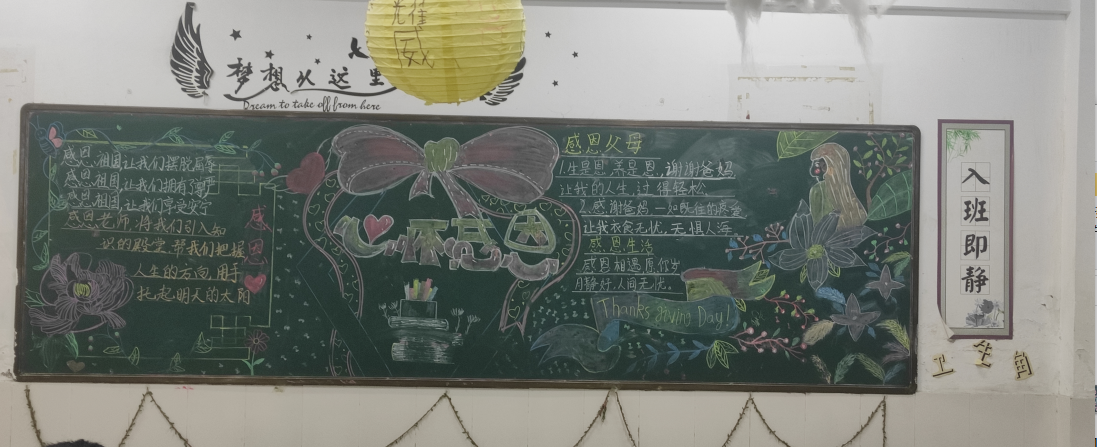 梦想从这里
Dream to take off from here
感恩祖国,让我们摆脱屈辱
感恩祖国,让我们拥有强严
感恩祖国,让我们享受安宁
感恩老师,将我们引入知
识的殿堂,帮我们把握
人生的方向,用手
托起明天的太阳
感恩
心怀感恩
感恩父母
1.生是恩,养是恩,谢谢爸妈
让我的人生,过得轻松
2.感谢爸妈一如既往的疼爱
让我衣食无忧,无惧人海
感恩生活
感恩相遇,愿你岁
月静好,人间无忧。
Thanks giving Day!
入班即静
卫生角